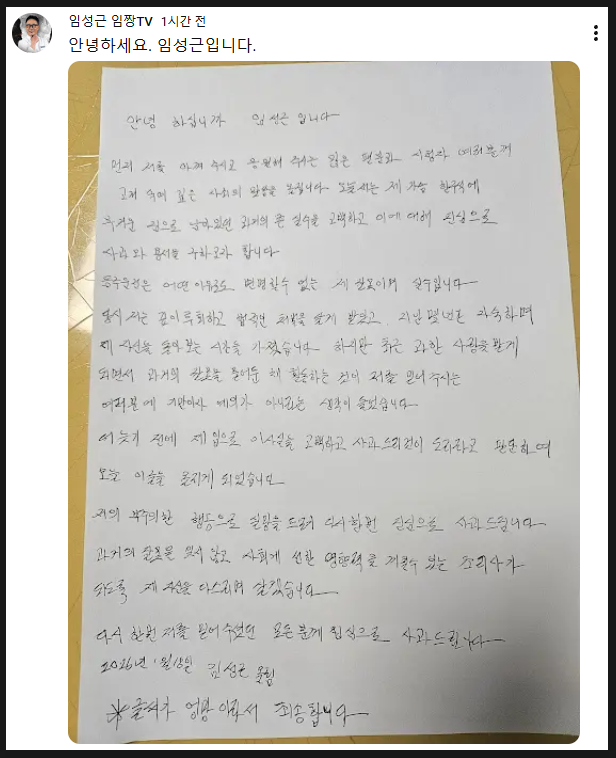 임성근 임짱TV 1시간 전
안녕하세요. 임성근입니다.
안녕 하십니까 임성근 입니다
먼저 저를 아껴 주시고 응원해 주시는 많은 팬분들과 시청자 여러분께
고개 숙여 깊은 사죄의 말씀을 올립니다 오늘 저는 제 가슴 한구석에
무거운 짐으로 남아있던 과거의 큰 실수를 고백하고 이에 대해 진심으로
사과와 용서를 구하고자 합니다
음주운전은 어떤 이유로도 변명할수 없는 제 잘못이며 실수입니다
당시 저는 깊이 후회하고 법적인 처벌을 달게 받았고 지난 몇년간 자숙하며
제 자신을 돌아보는 시간을 가졌습니다 하지만 최근 과한 사랑을 받게
되면서 과거의 잘못을 묻어둔 채 활동하는 것이 저를 믿어주시는
여러분에 기만이자 예의가 아니라는 생각이 들었습니다
더 늦기 전에 제 입으로 이사실을 고백하고 사과드리것이 도리라고 판단하여
오늘 이글을 올리게 되었습니다
저의 부주의한 행동으로 실망을 드려 다시한번 진심으로 사과드립니다
과거의 잘못을 잊지 않고 사회에 선한 영향력을 끼칠수 있는 조리사가
되도록 제 자신을 다스리며 살겠습니다
다시 한번 저를 믿어주셨던 모든 분께 진심으로 사과드립니다
2026년 1월 18일 임성근 올림
※글씨가 엉망 이라서 죄송합니다